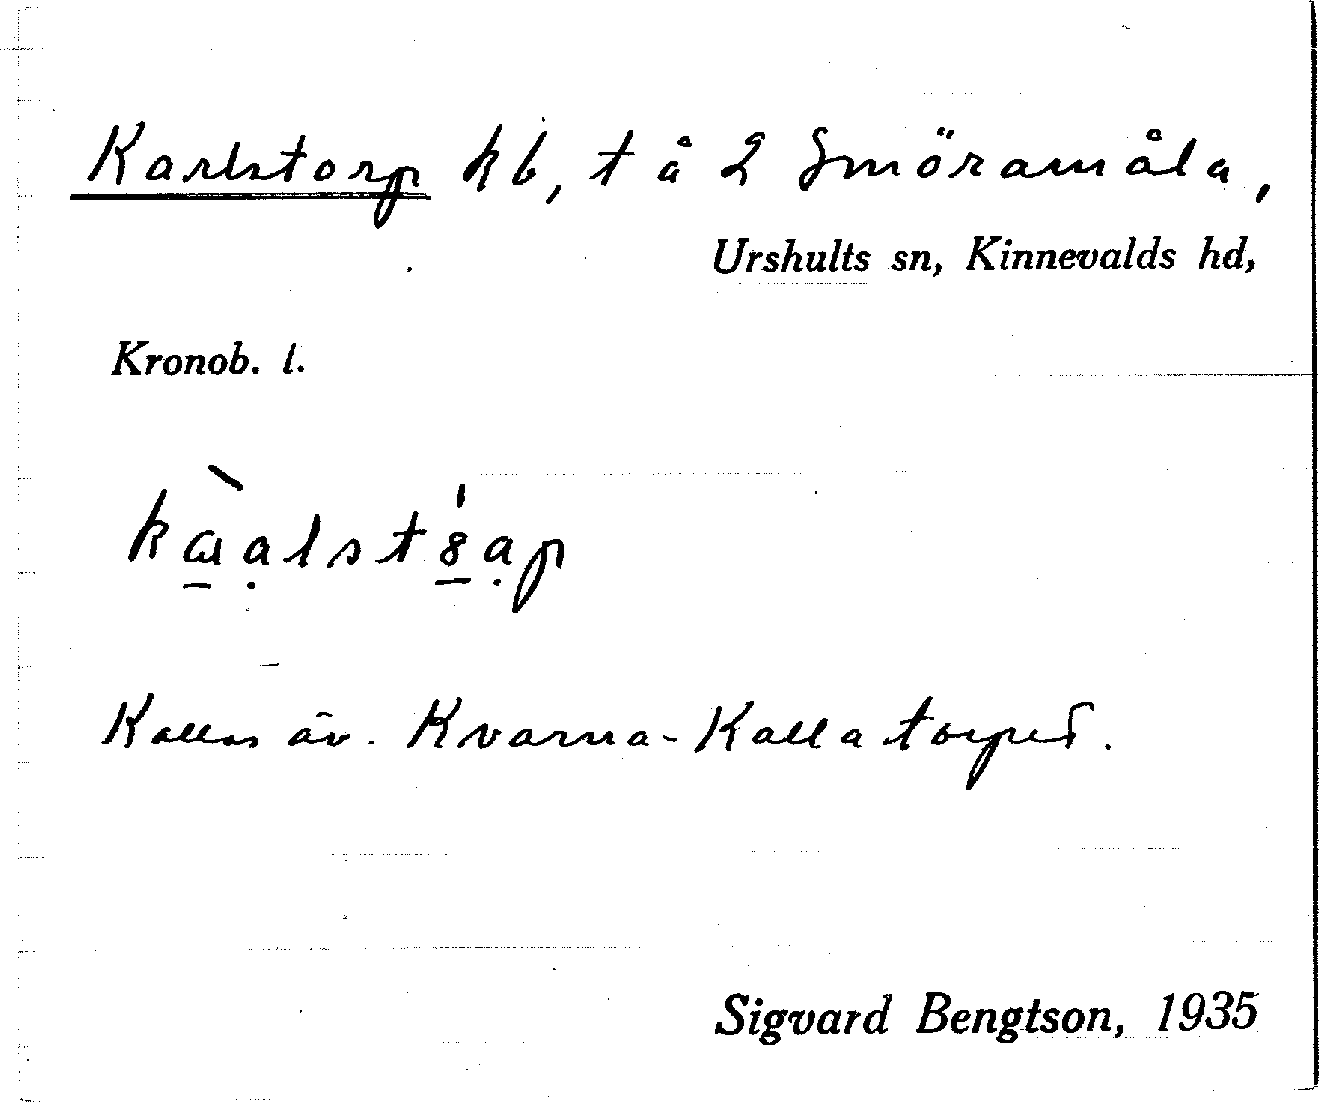 Karlstorp hb, t å 2 Smöramåla,
Urshults sn, Kinnevalds hd,
Kronob. l.
Kallas äv. Kvarna-Kallatorpet.
Sigvard Bengtson, 1935